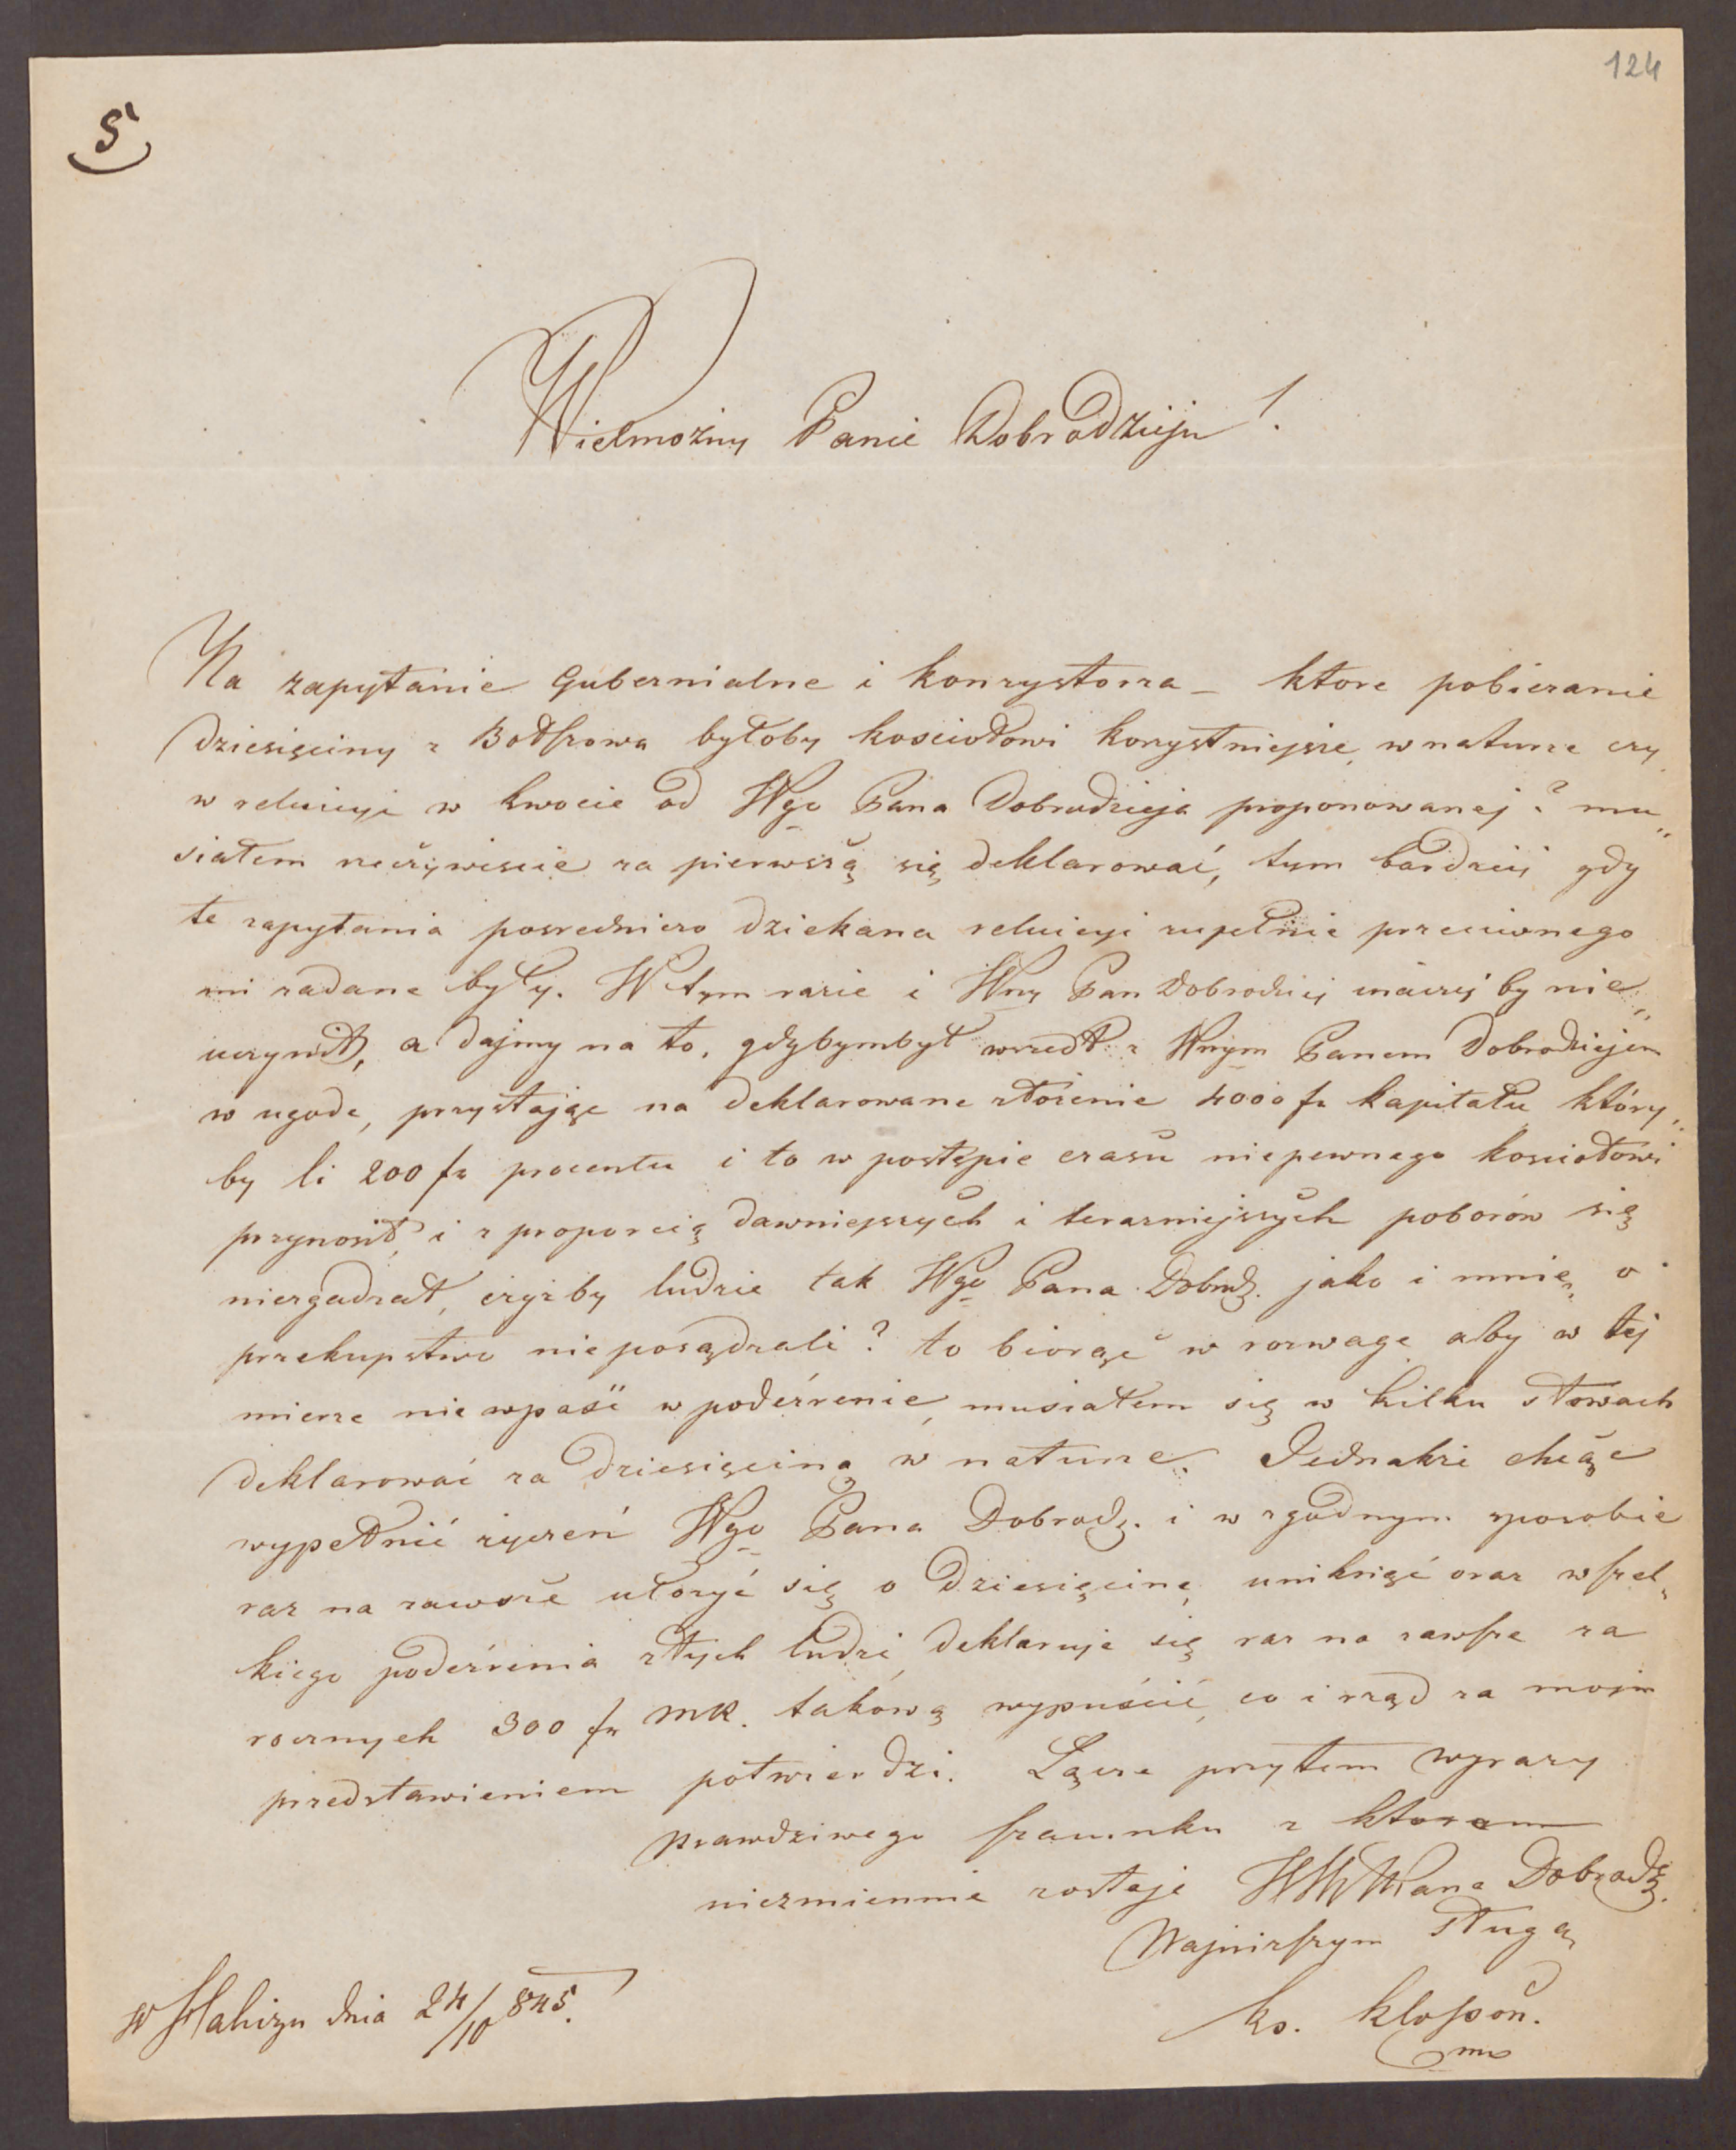 124
5
Wielmożny Panie Dobrodzieju!
Na zapytanie Gubernialne i konzystorza – ktore pobieranie
dziesięciny z Bołszowa byłoby kosciołowi korzystniejsze, w naturze czy
w reluicyi w kwocie od Wgo Pana Dobrodzieja proponowanej? mu„
siałem rzeczywiscie za pierwszą się deklarować, tym bardziej gdy
te zapytania posrednicze dziekana reluicyi zupełnie przeciwnego
mi zadane były. W tym razie i Wny Pan Dobrodziej inaczej by nie„
uczynił, a dajmy na to, gdybymbył wszedł z Wnym Panem Dobrodziejem
w ugode, przystając na deklarowane złożenie 4000 fr kapitału który„
by li 200 fr procentu i to w postępie czasu niepewnego kosciołowi
przynosił, i z proporcią dawniejszych i terazniejszych poborów się
niezgadzał, czyżby ludzie tak Wgo Pana Dobrodz. jako i mnie, o
przekupstwo nieposądzali? to biorąc w rozwage aby w tej
mierze nie wpaść w podeźrenie, musiałem się w kilku słowach
deklarować za dziesięciną w naturze. Jednakże chcąc
wypełnić życzeń Wgo Pana Dobrodz. i w zgodnym sposobie
raz na zawsze ułożyć się o dziesięcine, uniknąć oraz wszel„
kiego podeźrenia złych ludzi, deklaruje się raz na zawsze za
rocznych 300 fr MK. takową wypuścić, co i rząd za mojm
przedstawieniem potwierdzi. Łącze przytem wyrazy
prawdziwego szacunku z ktorem
niezmiennie zostaje WW Pana Dobrodz.
Najniższym sługą
ks. Klosson.
mp
w Haliczu dnia 24/10 845.